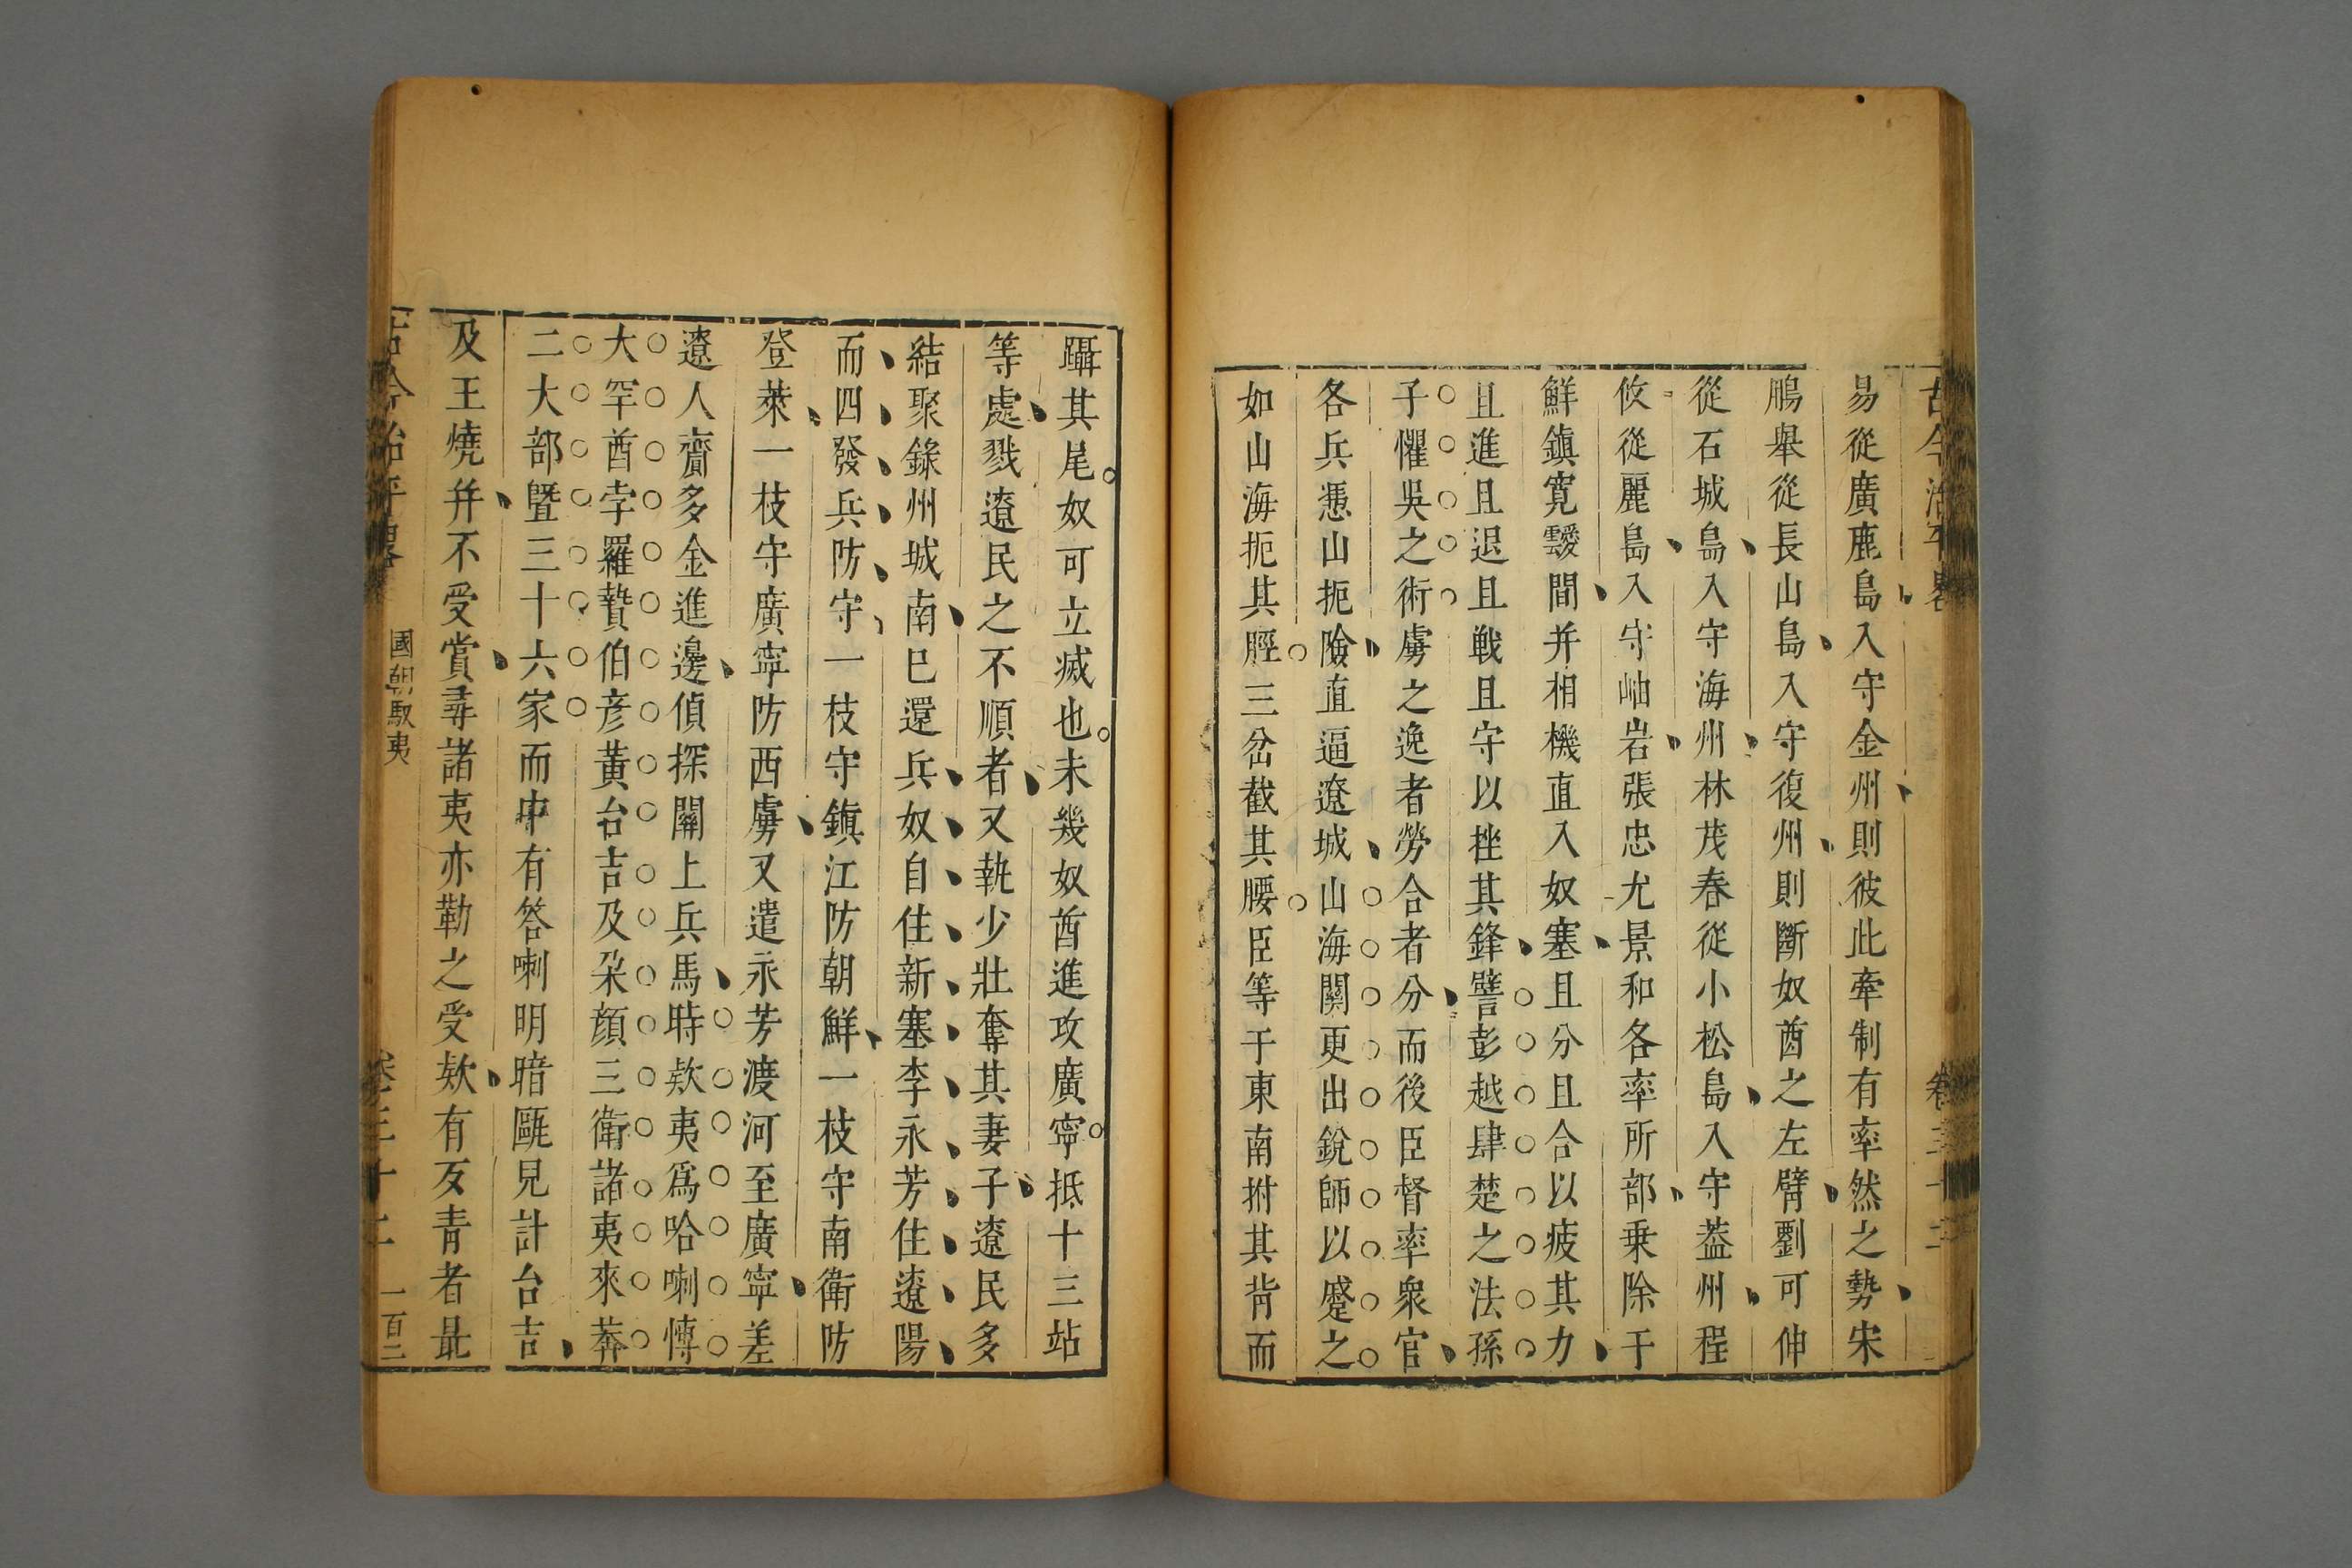 古今治平畧 卷三十二
易從廣鹿島入守金州則彼此牽制有率然之勢宋
鵬舉從長山島入守復州則斷奴酋之左臂劉可伸
從石城島入守海州林茂春從小松島入守葢州程
攸從麗島入守岫岩張忠尤景和各率所部乗除于
鮮鎮寛靉間并相機直入奴塞且分且合以疲其力
且進且退且戰且守以挫其鋒譬彭越肆楚之法孫
子懼吳之術虜之逸者勞合者分而後臣督率衆官
各兵慿山扼險直逼遼城山海關更出銳師以蹙之
如山海扼其脛三岔截其腰臣等于東南拊其背而
躡其尾奴可立滅也未幾奴酋進攻廣寧抵十三站
等處戮遼民之不順者又執少壯奪其妻子遼民多
結聚錄州城南巳還兵奴自住新塞李永芳住遼陽
而四發兵防守一枝守鎮江防朝鮮一枝守南衛防
登萊一枝守廣寧防西虜又遣永芳渡河至廣寧差
遼人齎多金進邊偵探關上兵馬時欵夷爲哈喇慱
大罕酋孛羅贄伯彦黃台吉及朶顔三衛諸夷來莽
二大部曁三十六家而中有答喇明暗毆見計台吉
及王燒并不受賞尋諸夷亦勒之受欵有歹青者最
古今治平畧 國朝馭夷 卷三十二 一百二